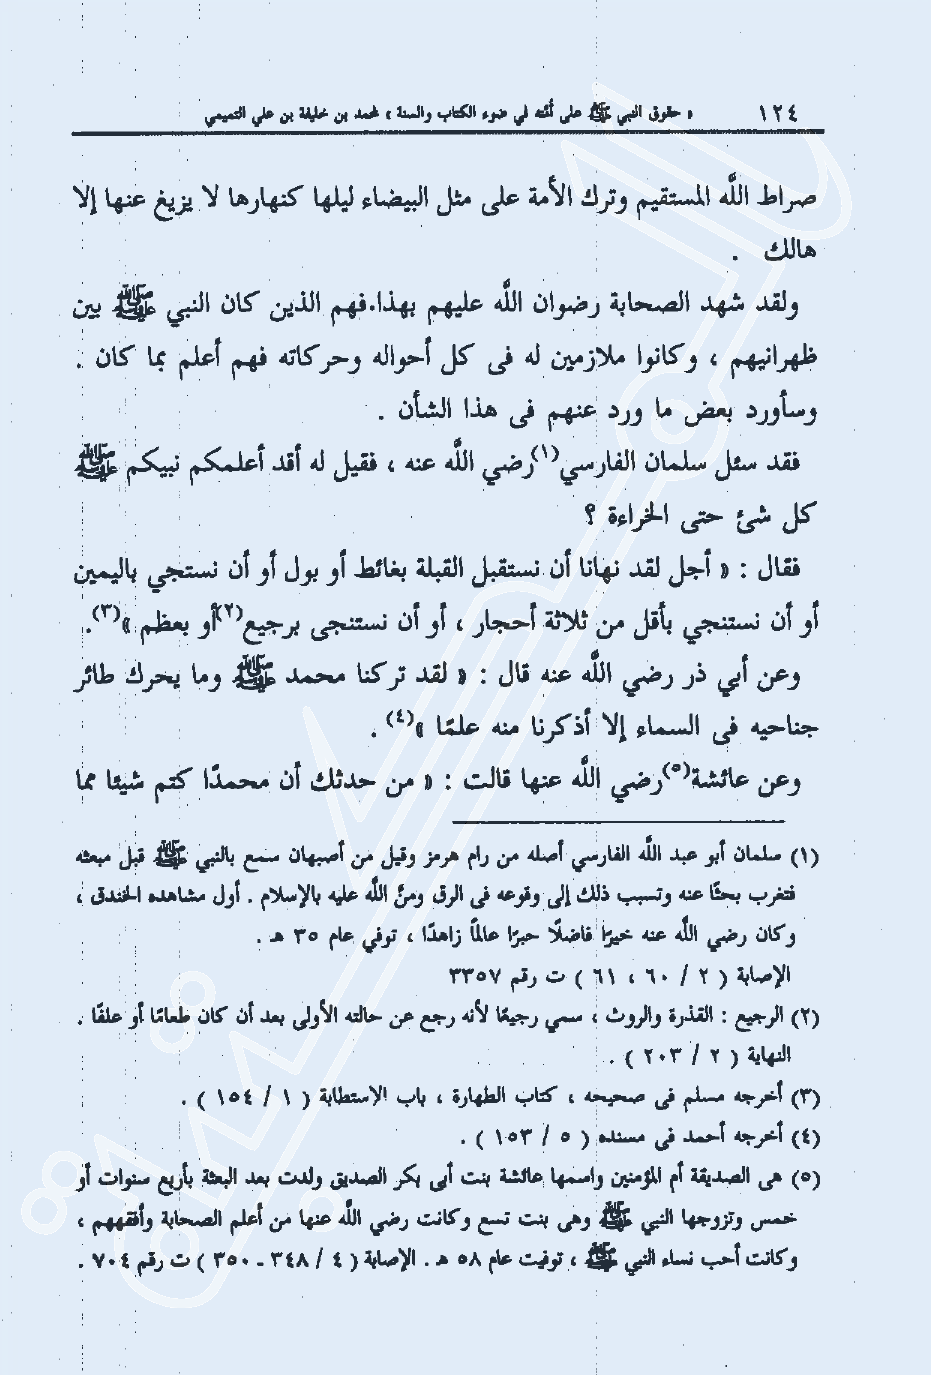 ١٢٤ « حقوق النبي ﷺ على أمته في ضوء الكتاب والسنة » محمد بن خليفة بن علي التميمي
صراط اللَّه المستقيم وترك الأمة على مثل البيضاء ليلها كنهارها لا يزيغ عنها إلا
هالك .
ولقد شهد الصحابة رضوان اللَّه عليهم بهذا.فهم الذين كان النبي ﷺ بين
ظهرانيهم ، وكانوا ملازمين له فى كل أحواله وحركاته فهم أعلم بما كان .
وسأورد بعض ما ورد عنهم فى هذا الشأن .
فقد سئل سلمان الفارسي(١)رضي اللَّه عنه ، فقيل له أقد أعلمكم نبيكم ﷺ
كل شئ حتى الخراءة ؟
فقال : « أجل لقد نهانا أن نستقبل القبلة بغائط أو بول أو أن نستنجي باليمين
أو أن نستنجي بأقل من ثلاثة أحجار ، أو أن نستنجى برجيع(٢)أو بعظم »(٣).
وعن أبي ذر رضي اللَّه عنه قال : « لقد تركنا محمد ﷺ وما يحرك طائر
جناحيه فى السماء إلا أذكرنا منه علمًا »(٤) .
وعن عائشة(٥)رضي اللَّه عنها قالت : « من حدثك أن محمدًا كتم شيئا مما
(١) سلمان أبو عبد اللَّه الفارسي أصله من رام هرمز وقيل من أصبهان سمع بالنبي ﷺ قبل مبعثه
فتغرب بحثًا عنه وتسبب ذلك إلى وقوعه فى الرق ومنَّ اللَّه عليه بالإسلام . أول مشاهده الخندق ،
وكان رضي اللَّه عنه خيرًا فاضلًا حبرًا عالمًا زاهدًا ، توفي عام ٣٥ هـ .
الإصابة ( ٢ / ٦٠ ، ٦١ ) ت رقم ٣٣٥٧
(٢) الرجيع : القذرة والروث ، سمي رجيعًا لأنه رجع عن حالته الأولى بعد أن كان طعامًا أو علفًا .
النهاية ( ٢ / ٢٠٣ ) .
(٣) أخرجه مسلم فى صحيحه ، كتاب الطهارة ، باب الاستطابة ( ١ / ١٥٤ ) .
(٤) أخرجه أحمد فى مسنده ( ٥ / ١٥٣ ) .
(٥) هى الصديقة أم المؤمنين واسمها عائشة بنت أبى بكر الصديق ولدت بعد البعثة بأربع سنوات أو
خمس وتزوجها النبي ﷺ وهى بنت تسع وكانت رضي اللَّه عنها من أعلم الصحابة وأفقههم ،
وكانت أحب نساء النبي ﷺ ، توفيت عام ٥٨ هـ . الإصابة ( ٤ / ٣٤٨ ـ ٣٥٠ ) ت رقم ٧٠٤ .